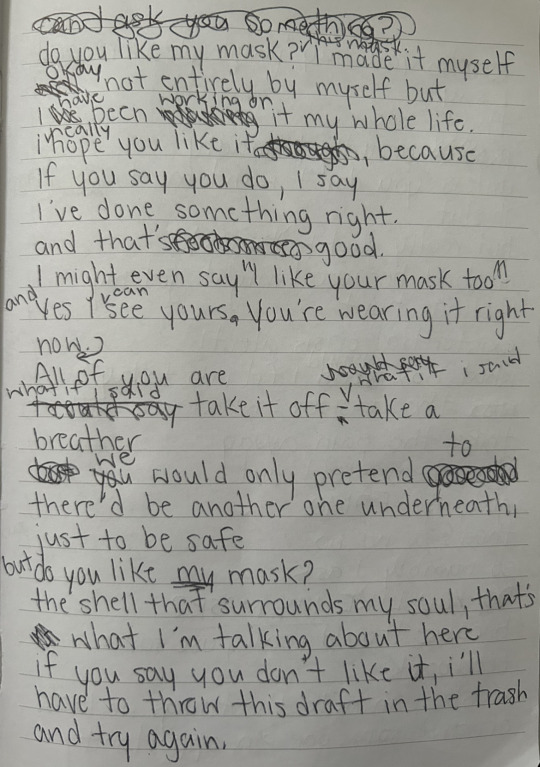 can I ask you something?
do you like my mask? this mask. I made it myself
okay not entirely by myself but
I have been working on it my whole life.
i really hope you like it, because
If you say you do, I say
I've done something right.
and that's good.
I might even say "I like your mask too"
and Yes I can see yours. You're wearing it right
now
All of you are
what if I said take it off - take a
breather
we would only pretend to
there'd be another one underneath,
just to be safe
but do you like my mask?
the shell that surrounds my soul, that's
what I'm talking about here
if you say you don't like it, i'll
have to throw this draft in the trash
and try again.